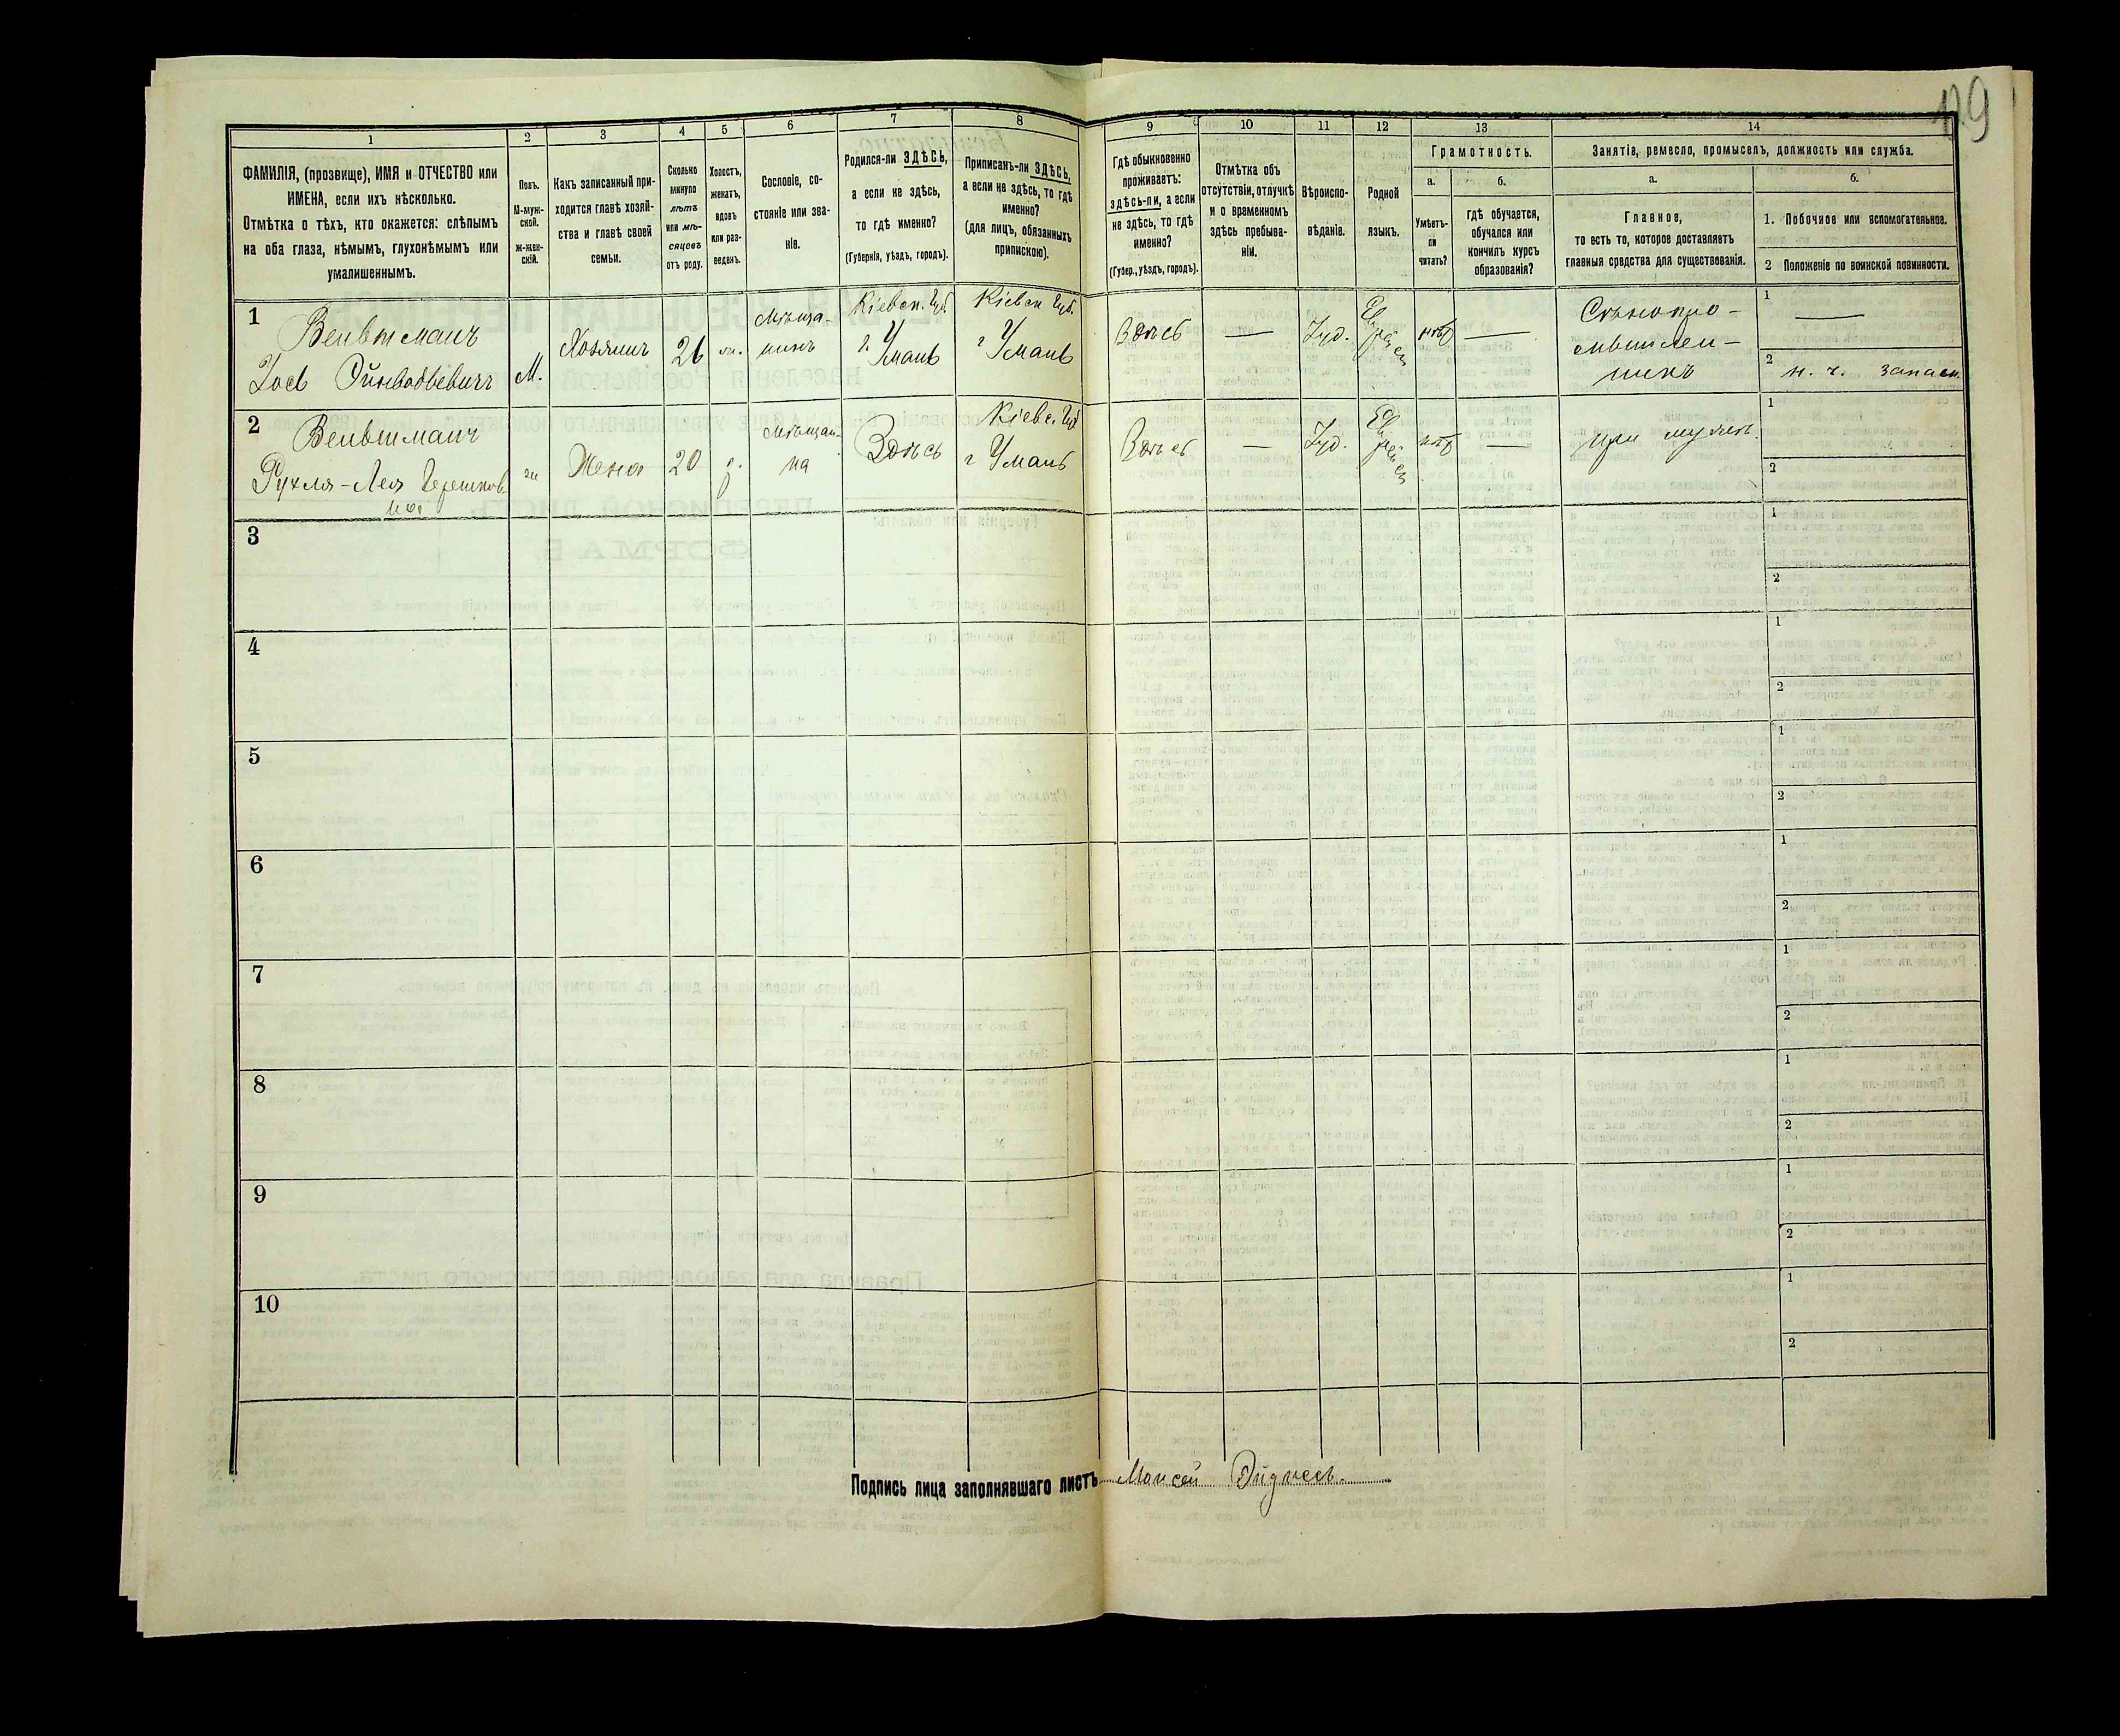 129
1
2
3
4
5
6
7
8
9
10
11
12
13
14
ФАМИЛІЯ, (прозвище), ИМЯ и ОТЧЕСТВО или
ИМЕНА, если ихъ нѣсколько.
Отмѣтка о тѣхъ, кто окажется: слѣпымъ
на оба глаза, нѣмымъ, глухонѣмымъ или
умалишеннымъ.
Полъ.
М-муж-
ской.
ж-жен-
скій.
Какъ записанный при-
ходится главѣ хозяй-
ства и главѣ своей
семьи.
Сколько
минуло
лѣтъ
или мѣ-
сяцевъ
отъ роду.
Холостъ,
женатъ,
вдовъ
или раз-
веденъ.
Сословіе, со-
стояніе или зва-
ніе.
Родился-ли ЗДѢСЬ,
а если не здѣсь,
то гдѣ именно?
(Губернія, уѣздъ, городъ).
Приписанъ-ли ЗДѢСЬ,
а если не здѣсь, то гдѣ
именно?
(для лицъ, обязанныхъ
припискою).
Гдѣ обыкновенно
проживаетъ:
здѣсь-ли, а если
не здѣсь, то гдѣ
именно?
(Губер., уѣздъ, городъ).
Отмѣтка объ
отсутствіи, отлучкѣ
и о временномъ
здѣсь пребыва-
ніи.
Вѣроиспо-
вѣданіе.
Родной
языкъ.
Грамотность.
а.
б.
Умѣетъ-
ли
читать?
гдѣ обучается,
обучался или
кончилъ курсъ
образованія?
Занятіе, ремесло, промыселъ, должность или служба.
а.
б.
Главное,
то есть то, которое доставляетъ
главныя средства для существованія.
1. Побочное или вспомогательное.
2 Положеніе по воинской повинности.
1
Вейтманъ
Іось
М.
Хозяинъ
26
жн.
Мѣща-
нинъ
Кіевск. Губ.
г. Умань
Кіевск Губ.
г Умань
Здѣсь
—
Іуд.
Еврейск
нѣт
—
1
—
2
н. ч. запасн.
2
Рухля-Лея
ж
Жена
20
З.
Мѣщан-
ка
Здѣсь
Кіевс. Губ
г Умань
Здѣсь
—
Іуд.
Еврейск
нѣт
—
при мужѣ.
1
2
3
1
2
4
1
2
5
1
2
6
1
2
7
1
2
8
1
2
9
1
2
10
1
2
Подпись лица заполнявшаго листъ Моисей